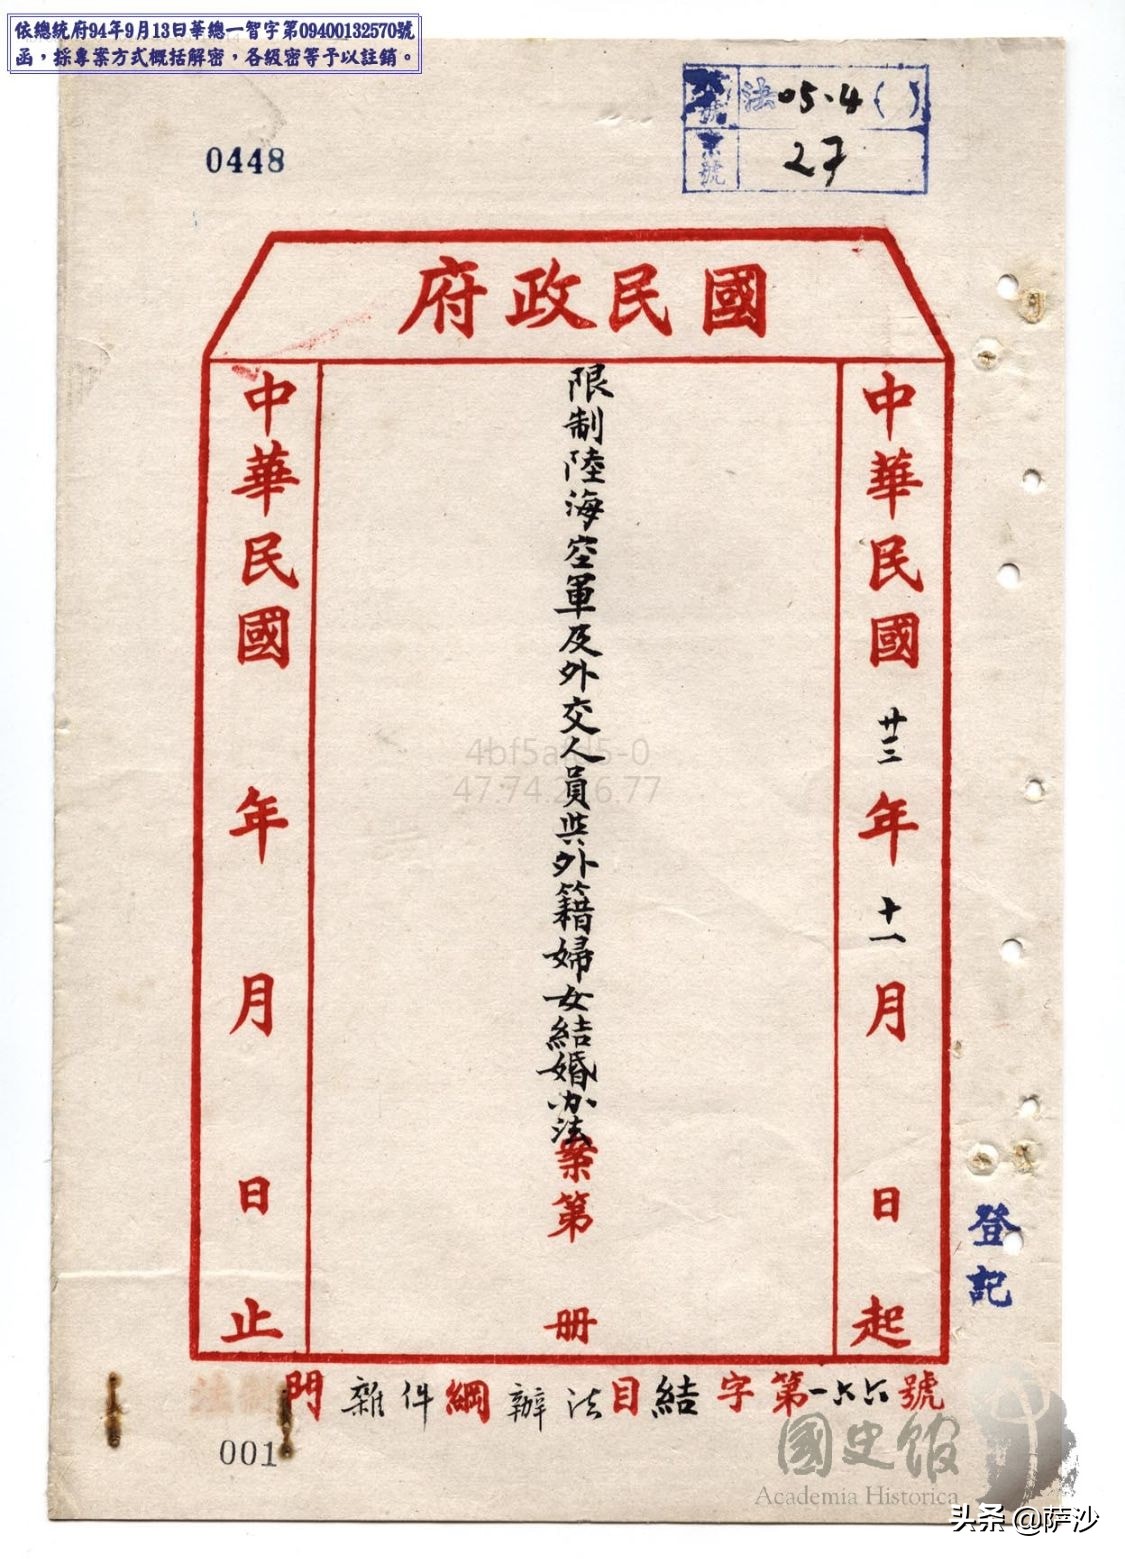 依總統府94年9月13日華總一智字第09400132570號
函，採專案方式概括解密，各級密等予以註銷。
0448
號 法05.4( )
號 27
國民政府
中華民國廿三年十一月 日起
限制陸海空軍及外交人員與外籍婦女結婚办法案第 册
中華民國 年 月 日止
登記
門 雜件綱 辦法目 結字第一六六號
001
國史館
Academia Historica
47.74.216.77
头条 @萨沙